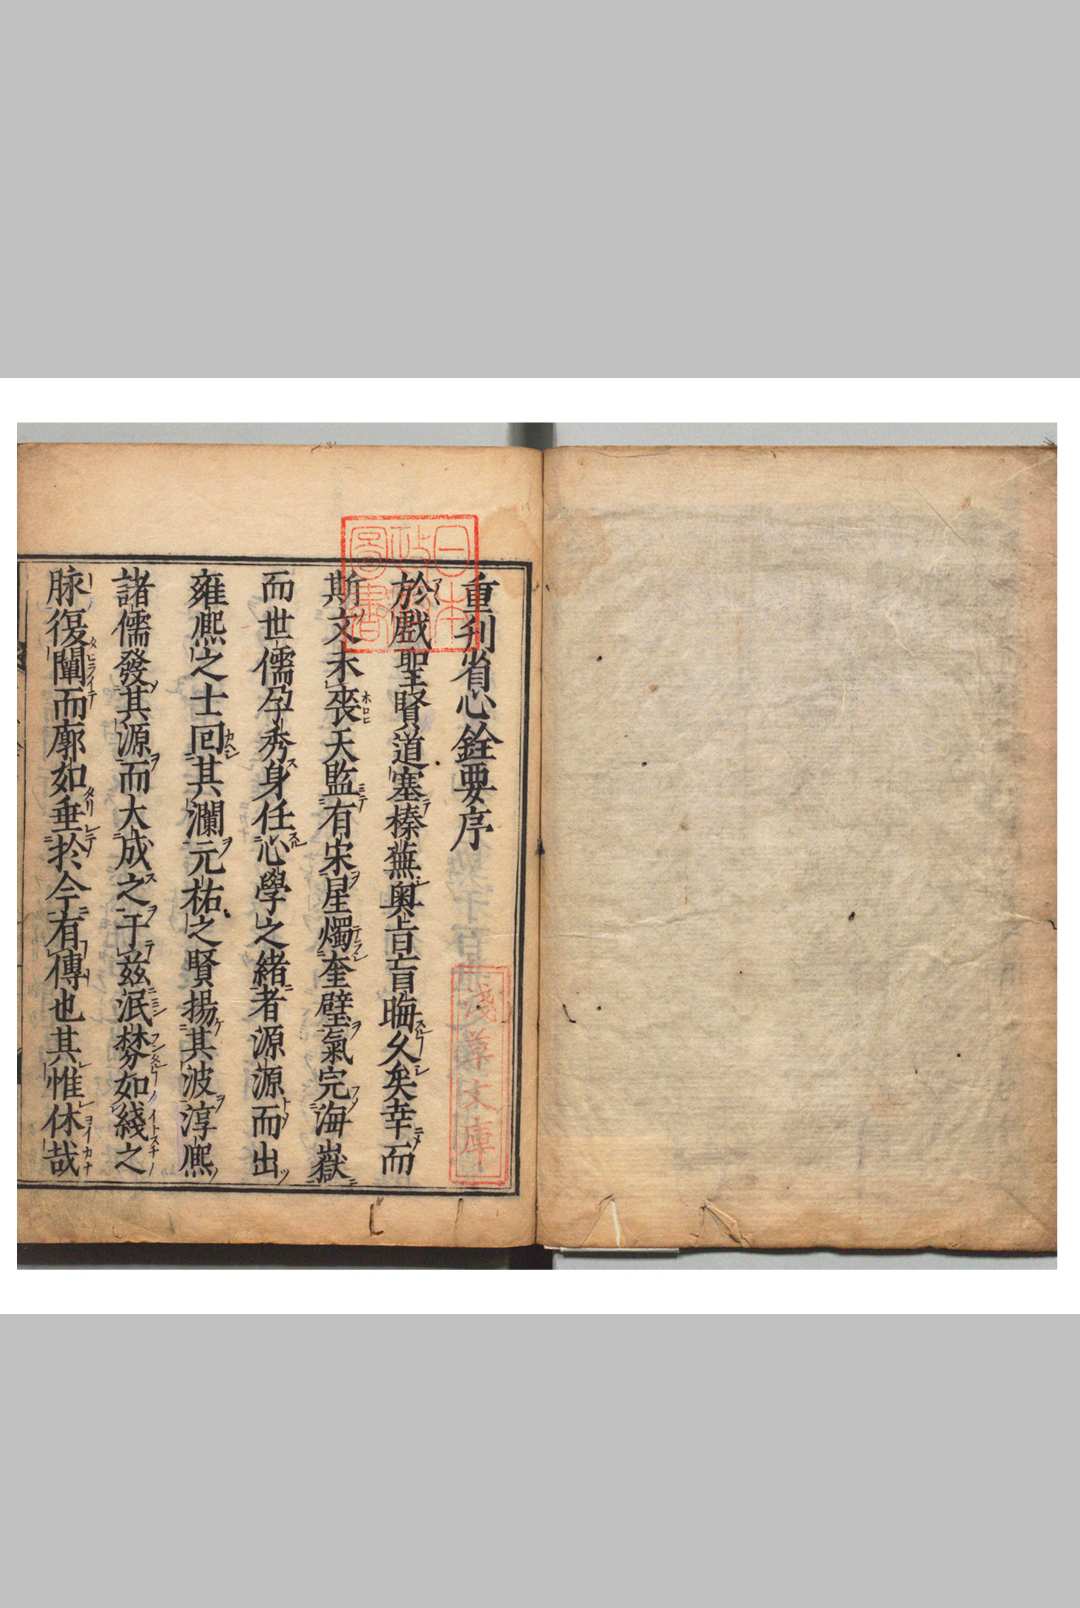 重刋省心銓要序
於戲聖賢道塞榛蕪奥旨盲晦久矣幸而
斯文未喪天監有宋星燭奎壁氣完海嶽
而世儒孕秀身任心學之緒者源源而出
雍熈之士回其瀾元祐之賢揚其波淳熈
諸儒發其源而大成之于茲泯棼如綫之
脉復闡而廓如垂於今有傳也其惟休哉
日本政府圖書
淺草文庫